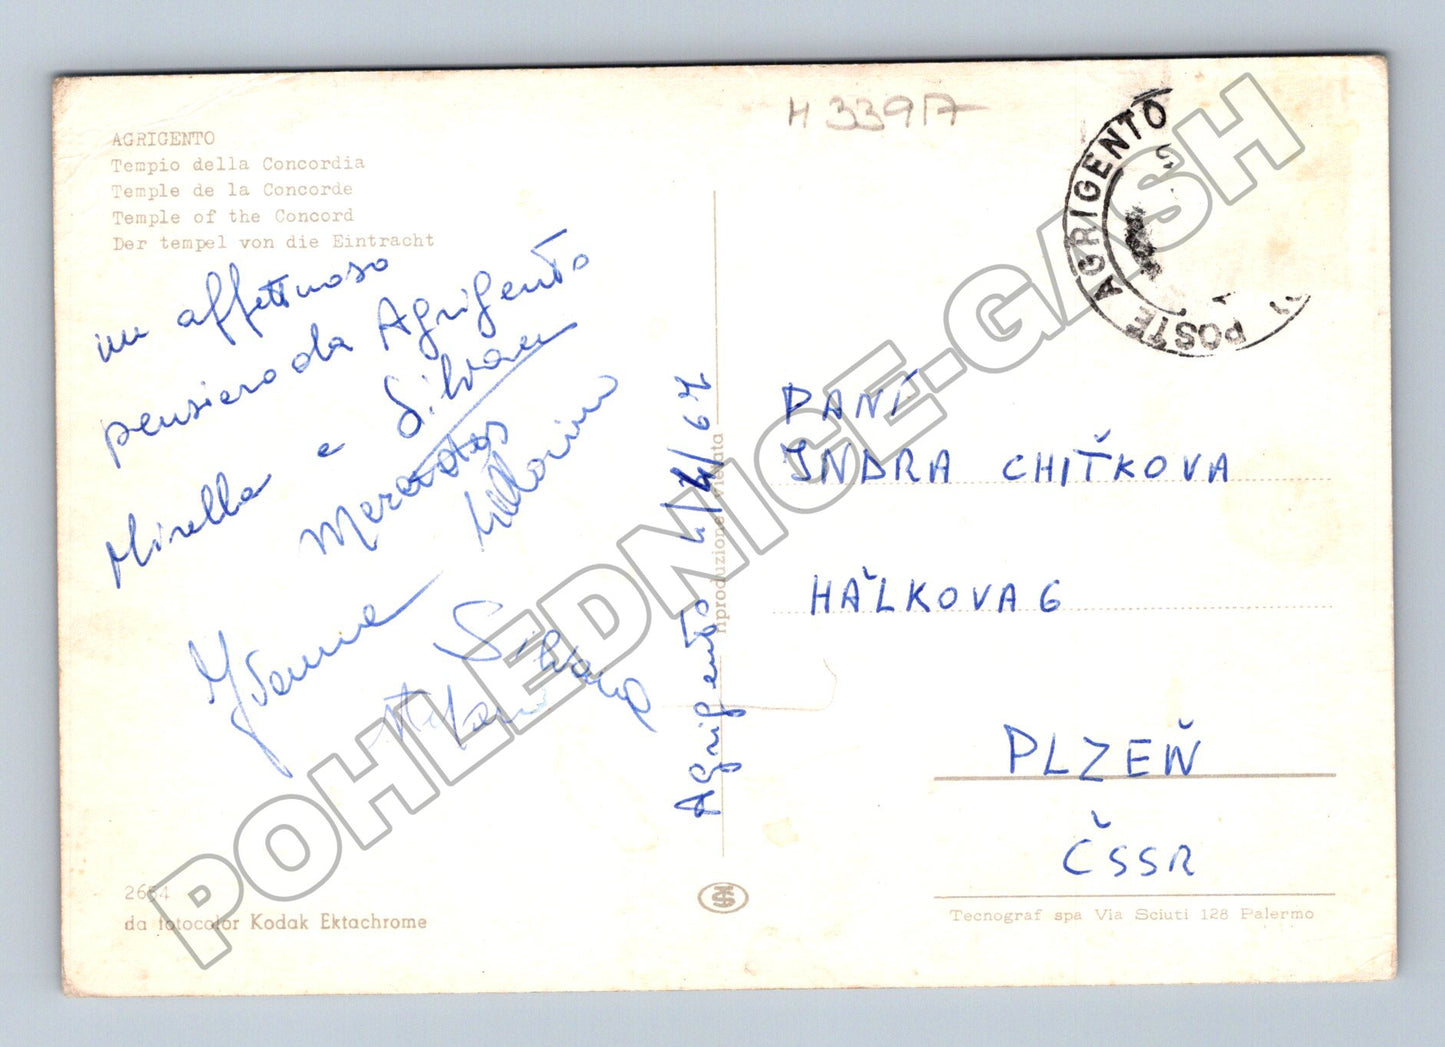 AGRIGENTO
Tempio della Concordia
Temple de la Concorde
Temple of the Concord
Der tempel von die Eintracht
un affettuoso
pensiero da Agrigento
Mirella e Silvan
Agrigento 4/4/67
riproduzione vietata
2654
da fotocolor Kodak Ektachrome
H 33917
POSTE AGRIGENTO
PANÍ
JNDRA CHIŤKOVA
HAĽKOVA 6
PLZEŇ
ČSSR
Tecnograf spa Via Sciuti 128 Palermo
POHLEDNICE-GASH